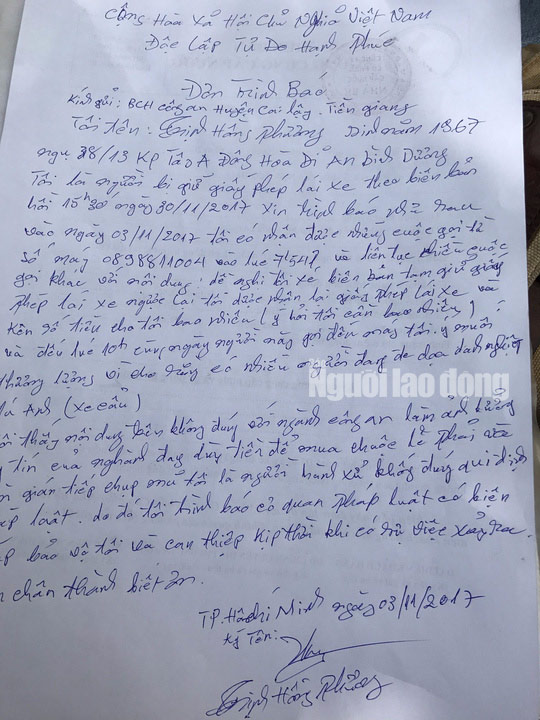 Cộng Hòa Xả Hội Chủ Nghỉa Việt Nam
Độc Lập Tử Do Hạnh Phúc
Đơn Trình Báo
Kính gửi: BCH công an Huyện Cai Lậy. Tiền giang
Tôi tên: Trịnh Hồng Phương Sinh năm 1967
ngụ 38/13 KP Tân A Đông Hòa Dỉ An Bình Dương
Tôi là người bị giữ giấy phép lái xe theo biên bản
hồi 15h30 ngày 30/11/2017 xin trình báo như sau
vào ngày 03/11/2017 tôi có nhân được những cuộc gọi từ
số máy 0898811004 vào lúc 7h54' và liên tục nhiều cuộc
gọi khác với nôi dung: đề nghị tôi xé biên bản tạm giữ giấy
phép lái xe ngược lại tôi được nhận lại giấy phép lái xe và
kèn số tiền cho tôi bao nhiêu (ý hỏi tôi cần bao nhiêu)
và đến lúc 10h cùng ngày người này gọi đến máy tôi ý muốn
thương lượng vì cho rằng có nhiều người đang đe dọa danh nghiệp
Tú Anh (xe cẩu)
tôi thấy nôi dung trên không đúng với ngành công an làm ảnh hưởng
uy tín của nghành đang dùng tiền để mua chuộc lẽ phải và
gián tiếp chụp mủ tôi là người hành xử không đúng qui định
pháp luật. do đó tôi trình báo cơ quan pháp luật có biện
pháp bảo vệ tôi và can thiệp kịp thời khi có sự việc xảy ra.
chân thành biết ơn.
TP. Hồ chí Minh ngày 03/11/2017
Ký Tên:
Trịnh Hồng Phương
Người lao động